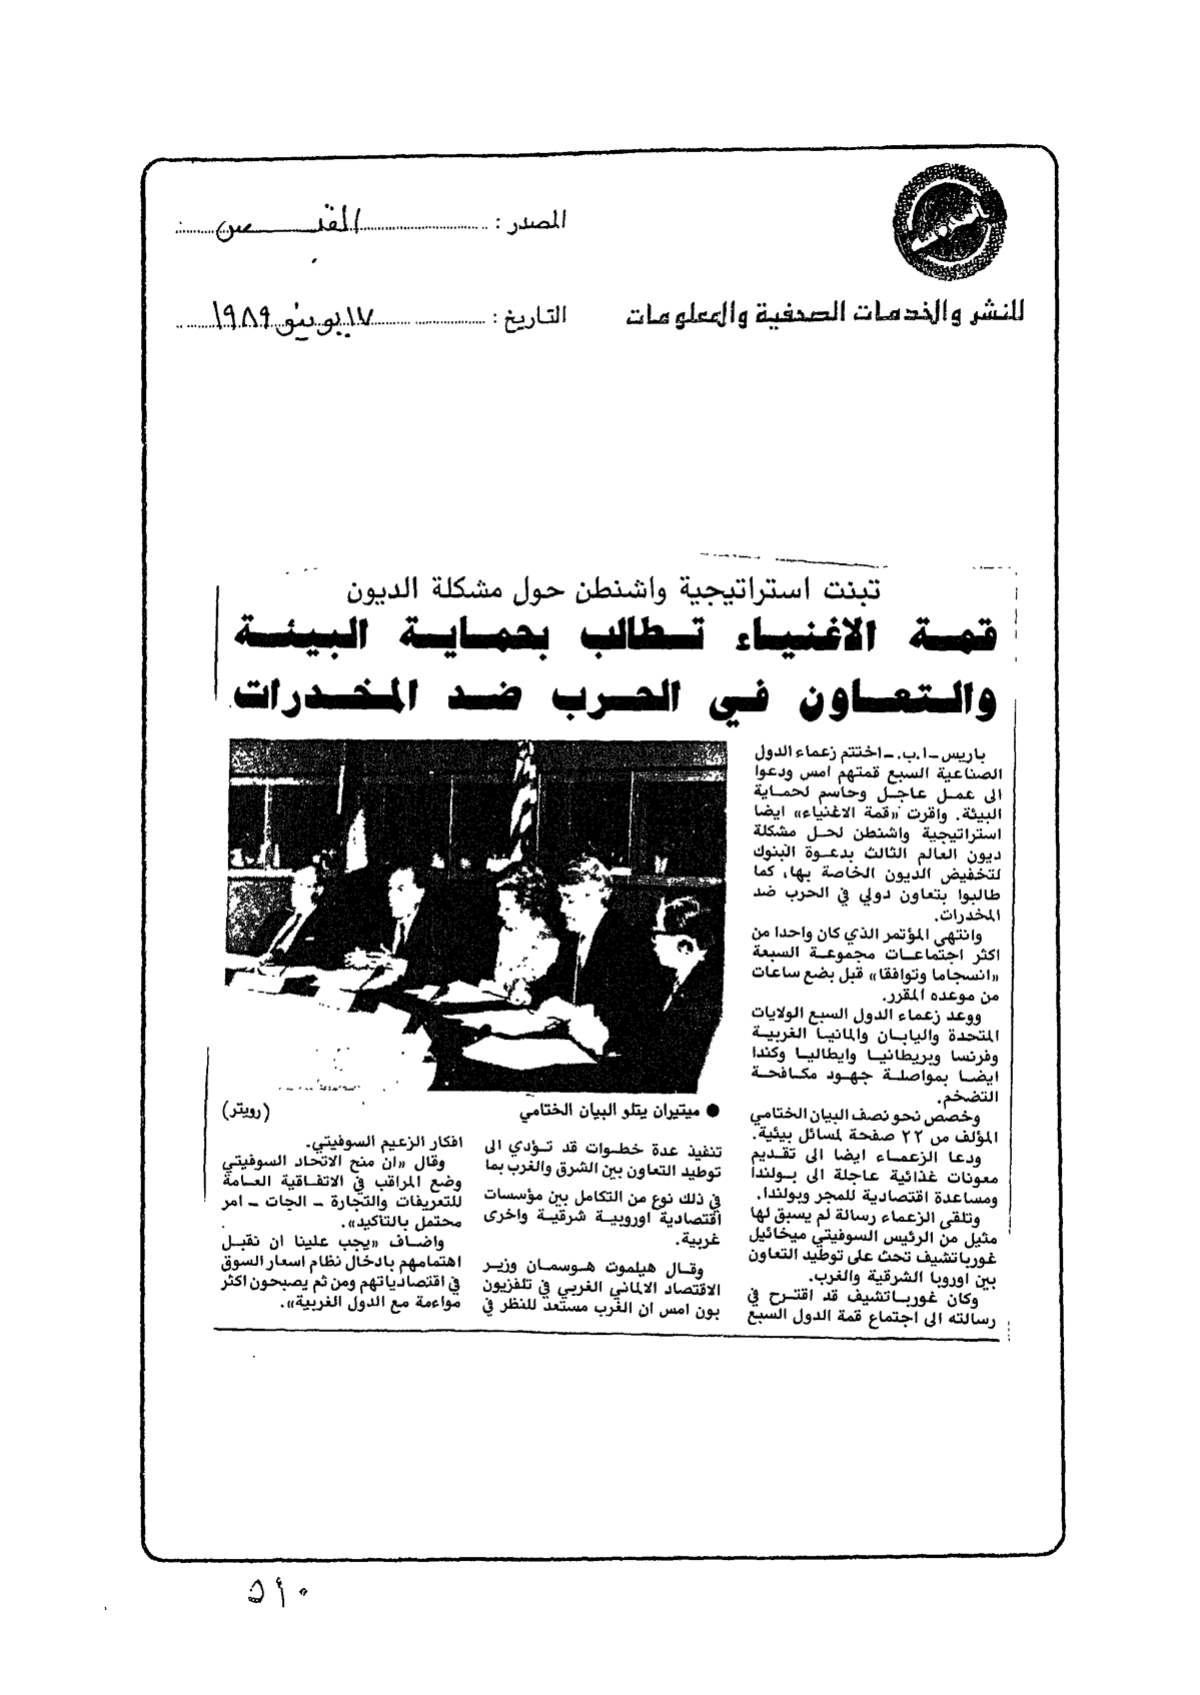 المصدر : القبس
للنشر والخدمات الصحفية والمعلومات
التاريخ : ١٧ يونيو ١٩٨٩
تبنت استراتيجية واشنطن حول مشكلة الديون
قمة الاغنياء تطالب بحماية البيئة
والتعاون في الحرب ضد المخدرات
باريس - ا.ب. - اختتم زعماء الدول
الصناعية السبع قمتهم امس ودعوا
الى عمل عاجل وحاسم لحماية
البيئة. واقرت «قمة الاغنياء» ايضا
استراتيجية واشنطن لحل مشكلة
ديون العالم الثالث بدعوة البنوك
لتخفيض الديون الخاصة بها، كما
طالبوا بتعاون دولي في الحرب ضد
المخدرات.
وانتهى المؤتمر الذي كان واحدا من
اكثر اجتماعات مجموعة السبعة
«انسجاما وتوافقا» قبل بضع ساعات
من موعده المقرر.
ووعد زعماء الدول السبع الولايات
المتحدة واليابان والمانيا الغربية
وفرنسا وبريطانيا وايطاليا وكندا
ايضا بمواصلة جهود مكافحة
التضخم.
وخصص نحو نصف البيان الختامي
المؤلف من ٢٢ صفحة لمسائل بيئية.
ودعا الزعماء ايضا الى تقديم
معونات غذائية عاجلة الى بولندا
ومساعدة اقتصادية للمجر وبولندا.
وتلقى الزعماء رسالة لم يسبق لها
مثيل من الرئيس السوفيتي ميخائيل
غورباتشيف تحث على توطيد التعاون
بين اوروبا الشرقية والغرب.
وكان غورباتشيف قد اقترح في
رسالته الى اجتماع قمة الدول السبع
● ميتيران يتلو البيان الختامي (رويتر)
تنفيذ عدة خطوات قد تؤدي الى
توطيد التعاون بين الشرق والغرب بما
في ذلك نوع من التكامل بين مؤسسات
اقتصادية اوروبية شرقية واخرى
غربية.
وقال هيلموت هوسمان وزير
الاقتصاد الالماني الغربي في تلفزيون
بون امس ان الغرب مستعد للنظر في
افكار الزعيم السوفيتي.
وقال «ان منح الاتحاد السوفيتي
وضع المراقب في الاتفاقية العامة
للتعريفات والتجارة - الجات - امر
محتمل بالتأكيد».
واضاف «يجب علينا ان نقبل
اهتمامهم بادخال نظام اسعار السوق
في اقتصادياتهم ومن ثم يصبحون اكثر
مواءمة مع الدول الغربية».
٥١٠